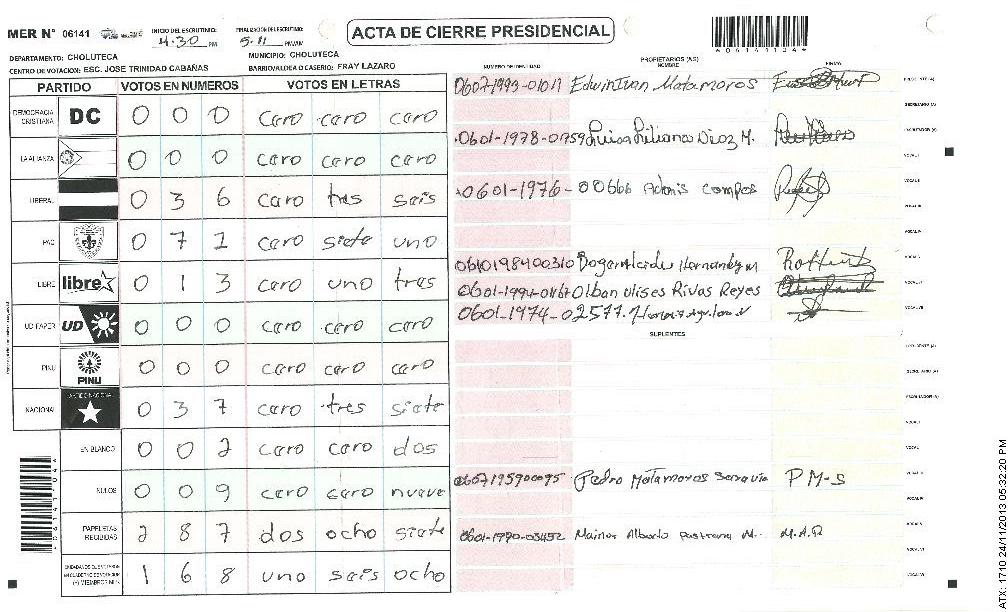 MER N° 06141 INICIO DEL ESCRUTINIO: 4:30 PM FINALIZACION DE ESCRUTINIO: 5:11 PM/AM ACTA DE CIERRE PRESIDENCIAL
DEPARTAMENTO: CHOLUTECA MUNICIPIO: CHOLUTECA
CENTRO DE VOTACION: ESC. JOSE TRINIDAD CABAÑAS BARRIO/ALDEA O CASERIO: FRAY LAZARO
PARTIDO VOTOS EN NUMEROS VOTOS EN LETRAS
DEMOCRACIA CRISTIANA DC 0 0 0 cero cero cero
LA ALIANZA 0 0 0 cero cero cero
LIBERAL 0 3 6 cero tres seis
PAC 0 7 1 cero siete uno
LIBRE libre 0 1 3 cero uno tres
UD FAPER UD 0 0 0 cero cero cero
PINU PINU 0 0 0 cero cero cero
NACIONAL 0 3 7 cero tres siete
EN BLANCO 0 0 2 cero cero dos
NULOS 0 0 9 cero cero nueve
PAPELETAS RECIBIDAS 2 8 7 dos ocho siete
1 6 8 uno seis ocho
PROPIETARIOS (AS)
NUMERO DE IDENTIDAD NOMBRE FIRMA
0607-1993-01011 Edwin Ivan Matamoros
0601-1978-01759 Luisa Liliana Diaz M.
0601-1976-00666 Adonis Campos
0610198400310 Hernandez M
Olban Ulises Rivas Reyes
0601-1974-02577
SUPLENTES
0607195900095 Pedro Matamoros P M-S
0601-1990-03452 Mainor Alberto Pastrana M. M.A.P
ATX: 1710 24/11/2013 05:32:20 PM